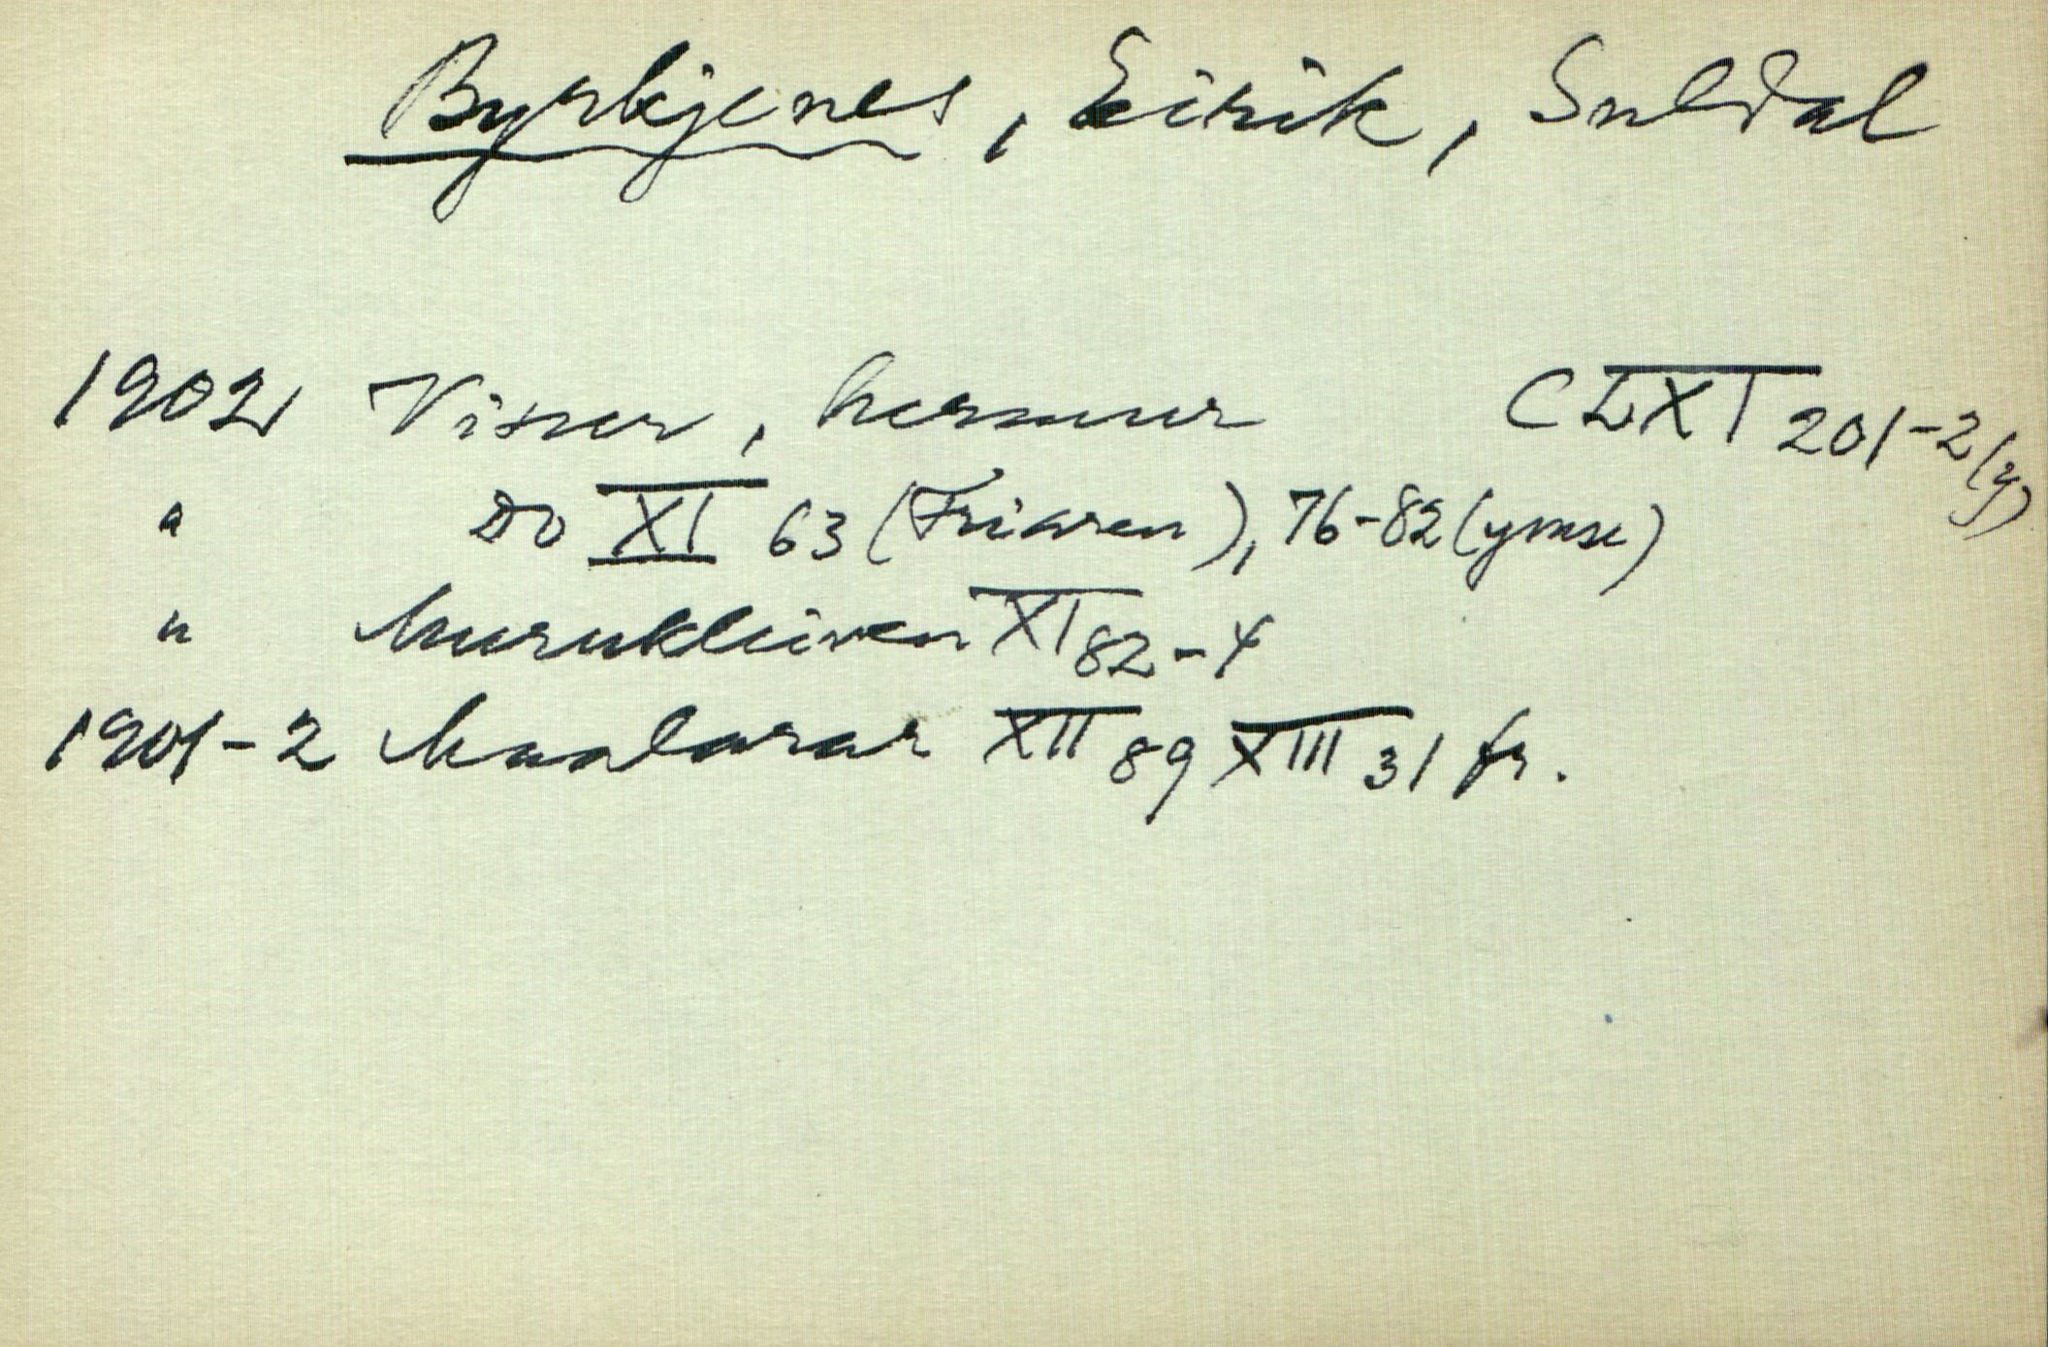 Byrkjenes, Eirik, Suldal
1902 Visur, hermur CLXXI 201-2 (y)
" Do XI 63 (Friaren), 76-82 (ymse)
" XI 82-4
1901-2 XII 89 XIII 31 fr.